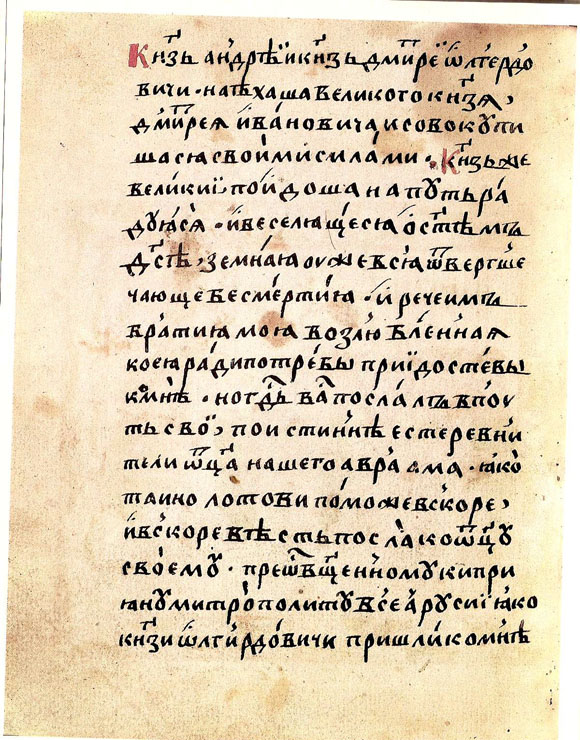 Кнѧ҃зь андрѣй и кнѧ҃зь дмитреї ѡлгердо
вичи · наѣхаша великого кнѧзя,
дмитрея ивановича, и совокупи
шася своими силами · Кнѧ҃зь же
великиї пойдоша на путь ра
дуюся · и веселящеся о ст҃ѣмъ
дс҃тѣ, земная оуже вся ѿвергше
чающе бесмертия · и рече имъ
братия моя возлюбленная
коея ради потребы приїдосте вы
ко мнѣ · но гд҃ь ва҃ послалъ в поу
ть свої, по истиннѣ есте ревни
тьли ѿц҃а нашего авраама · яко
та ино лотови поможе вскоре,
и вскоре вѣсть посла ко ѿц҃у
своему · преѡсв҃щенному кипри
яну митрополиту всеа русиї яко
кнѧ҃зи ѡлгирдовичи пришли ко мнѣ